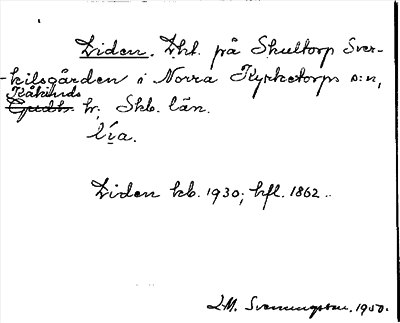 Liden. Dht. på Skultorp Sver-
-kilsgården i Norra Kyrketorps s:n,
Kåkinds
Gudh. hr; Skb. län.
lía.
Liden kb. 1930; hfl. 1862..
L.M. Svenungsson. 1950.